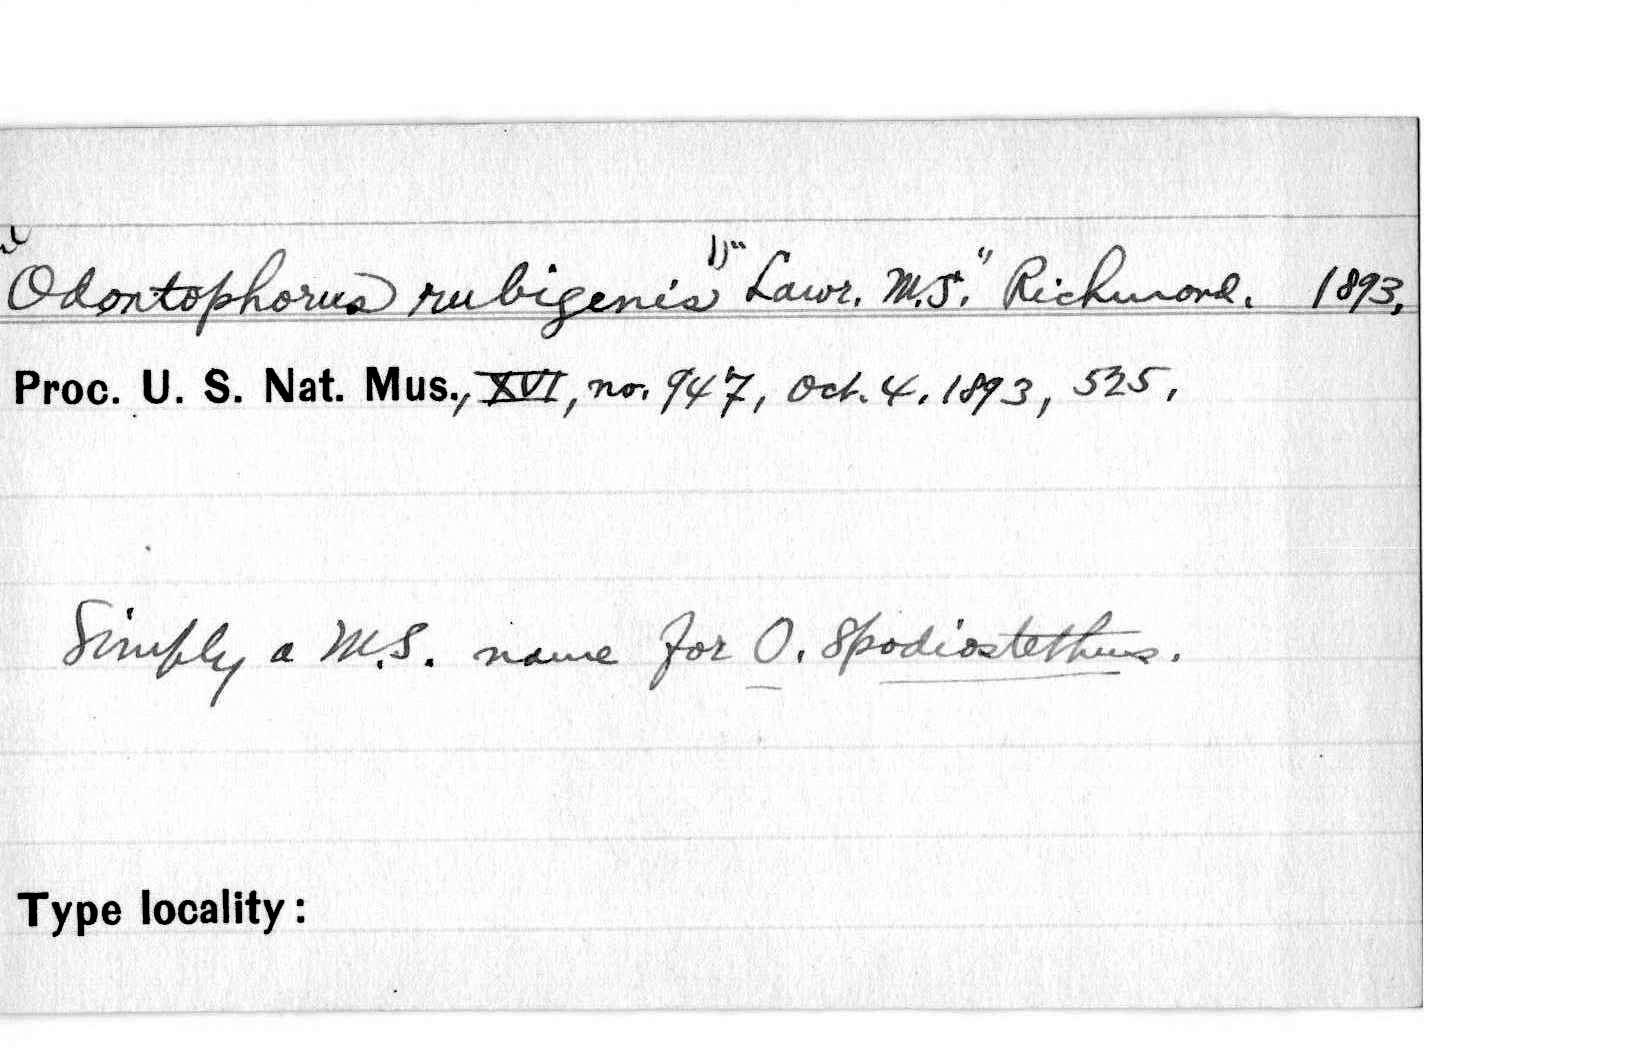 "Odontophorus rubigenis" "Lawr. M.S." Richmond. 1893,
Proc. U. S. Nat. Mus., XVI, no. 947, Oct. 4, 1893, 525,
Simply a M.S. name for O. spodiostethus.
Type locality: